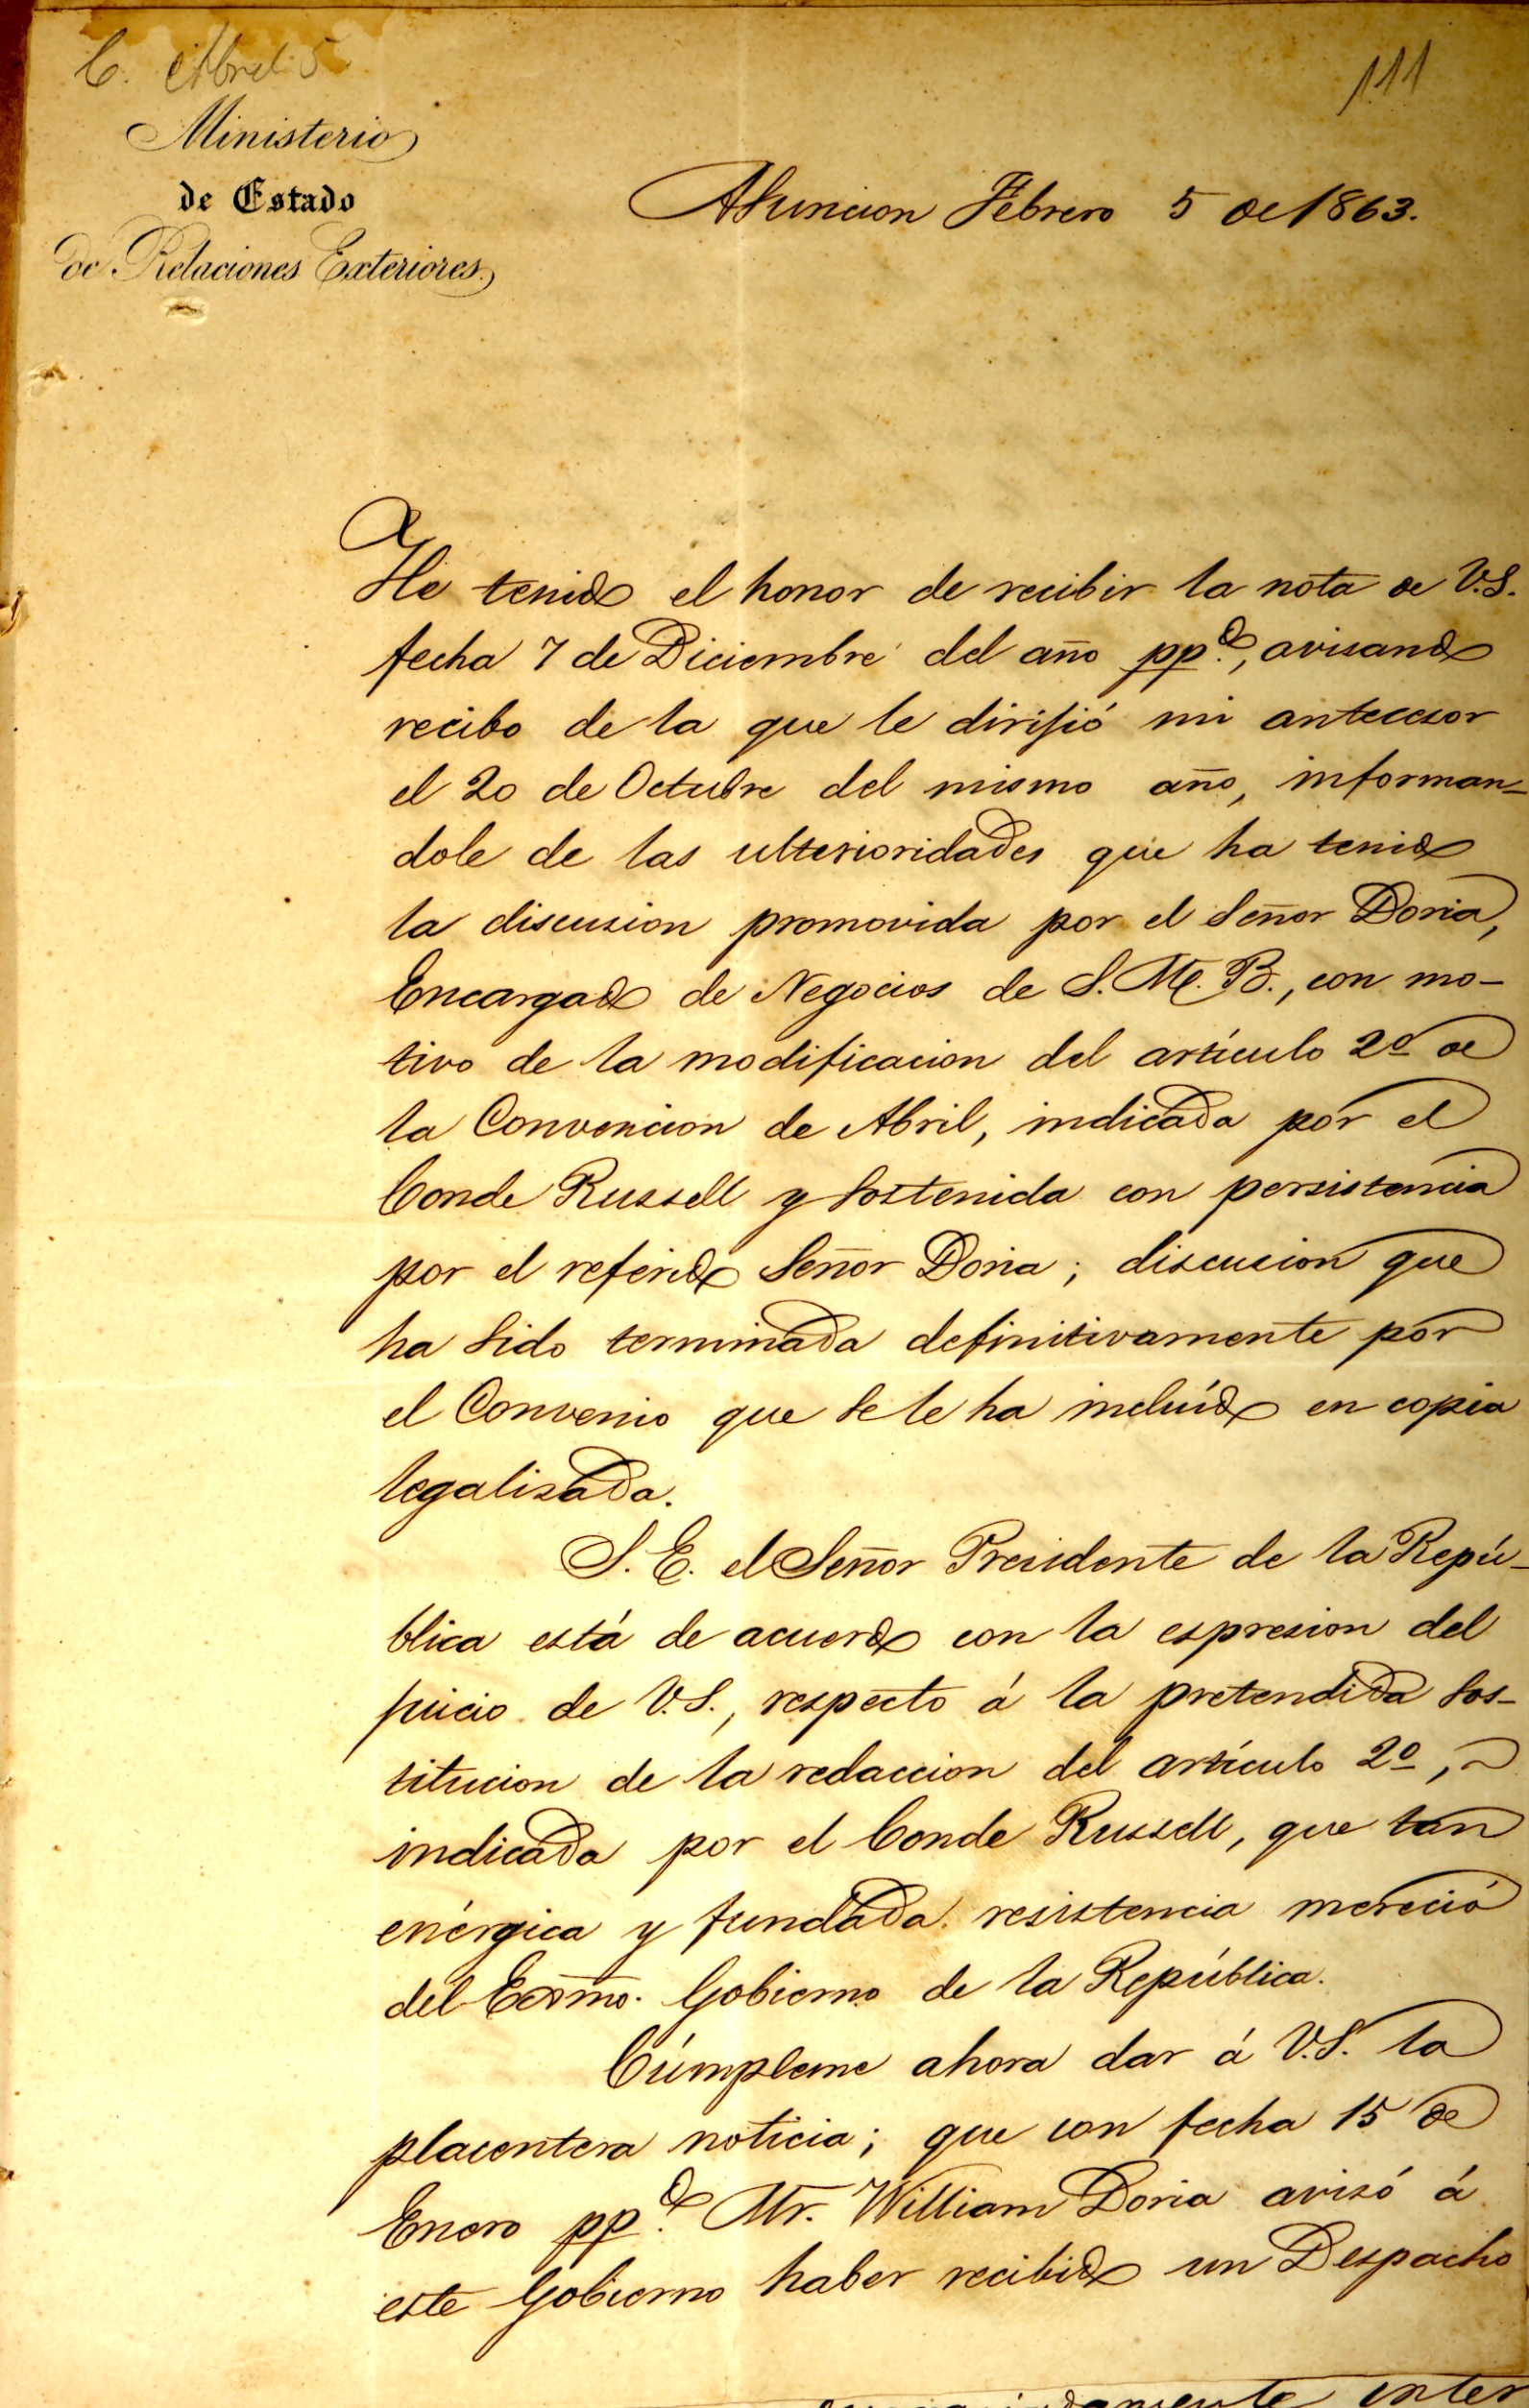 C. Abril 5
111
Ministerio
de Estado
de Relaciones Exteriores.
Asuncion Febrero 5 de 1863.
He tenido el honor de recibir la nota de V.S.
fecha 7 de Diciembre del año ppdo., avisando
recibo de la que le dirijió mi antecesor
el 20 de Octubre del mismo año, informan-
dole de las ulterioridades que ha tenido
la discusion promovida por el Señor Doria,
Encargado de Negocios de S. M. B., con mo-
tivo de la modificacion del artículo 2º de
la Convencion de Abril, indicada por el
Conde Russell y sostenida con persistencia
por el referido Señor Doria; discusion que
ha sido terminada definitivamente por
el Convenio que se le ha incluído en copia
legalizada.
S. E. el Señor Presidente de la Repú-
blica está de acuerdo con la espresion del
juicio de V.S., respecto á la pretendida sos-
titucion de la redaccion del artículo 2º,
indicada por el Conde Russell, que tan
enérgica y fundada resistencia mereció
del Exmo. Gobierno de la República.
Cúmpleme ahora dar á V.S. la
placentera noticia; que con fecha 15 de
Enero ppdo. Mr. William Doria avisó á
este Gobierno haber recibido un Despacho